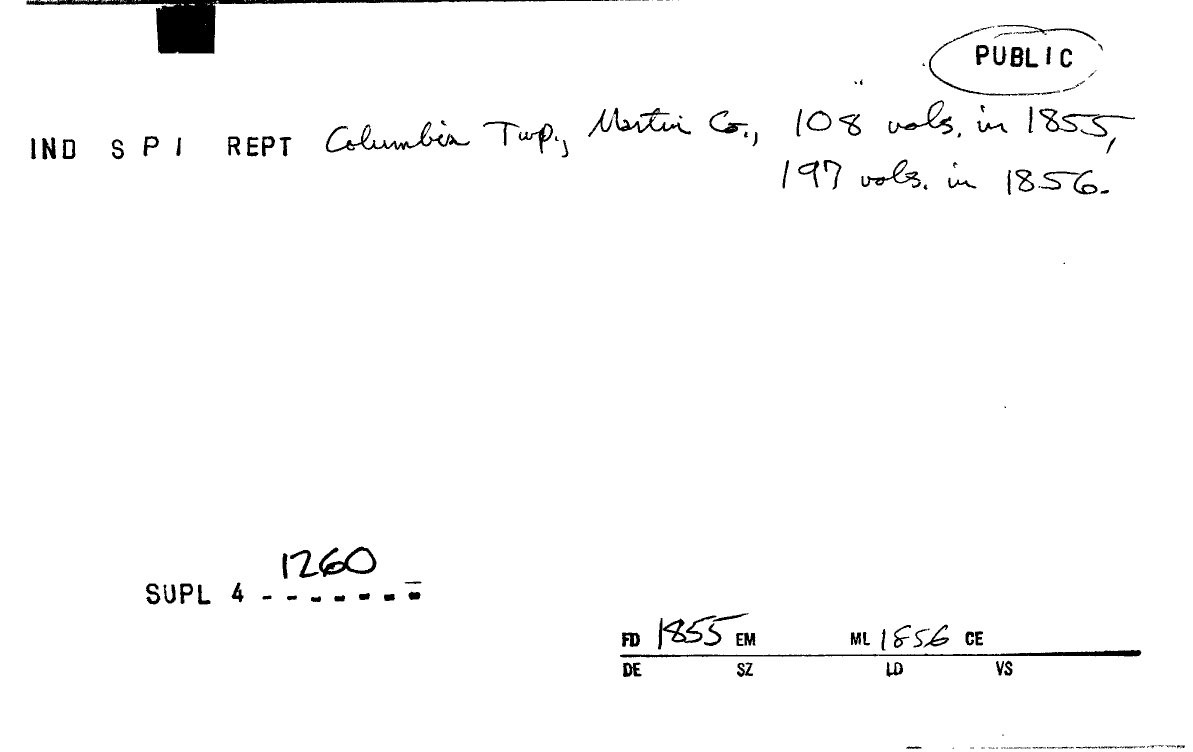 PUBLIC
IND S P I REPT Columbia Twp., Martin Co., 108 vols. in 1855,
197 vols. in 1856.
1260
SUPL 4 -------
FD 1855 EM ML 1856 CE
DE SZ LD VS